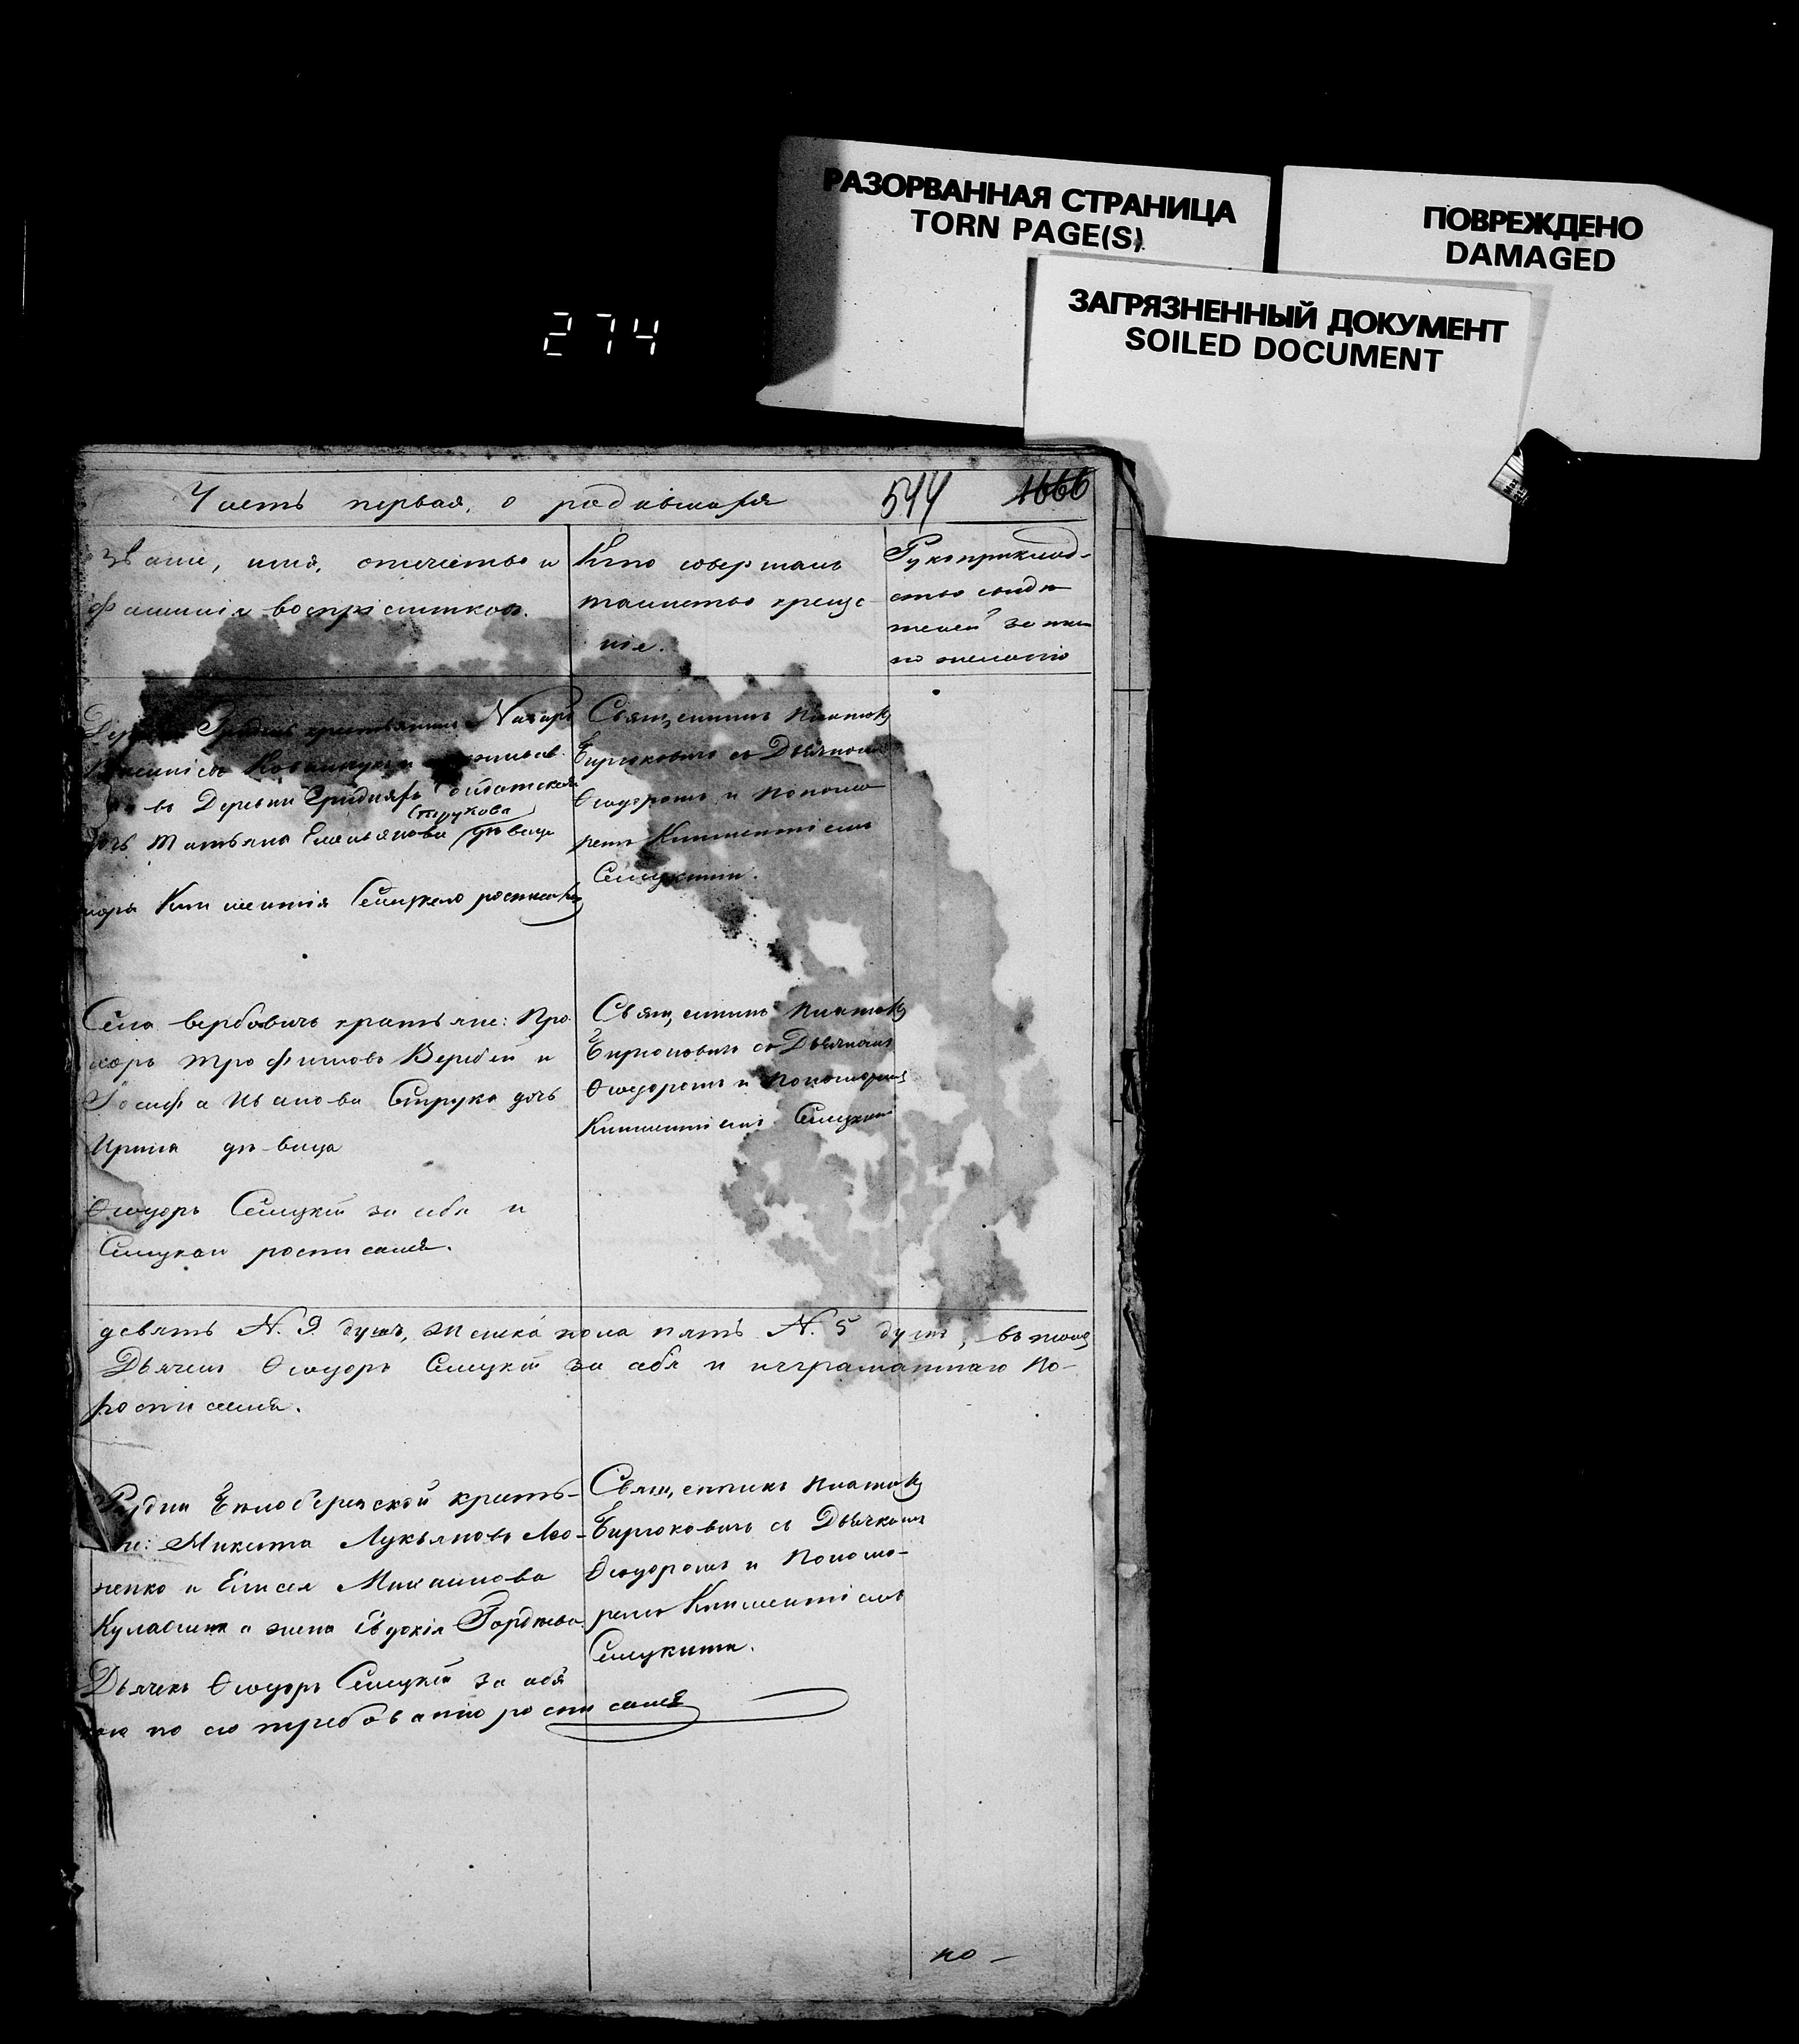 РАЗОРВАННАЯ СТРАНИЦА
TORN PAGE(S)
ПОВРЕЖДЕНО
DAMAGED
ЗАГРЯЗНЕННЫЙ ДОКУМЕНТ
SOILED DOCUMENT
274
Часть первая, о родившихся
544 1666
Званіе, имя, отчество и
фамилія воспріемниковъ.
Кто совершалъ
таинство креще
нія.
Рукоприклад-
ство свидѣ
телей записи
по желанію
крестьянинъ Назаръ
въ Деревни
Струкова
дочь Татьяна Емельянова дѣвица
Климентія Селицкаго росписался
Священникъ Платонъ
Бирюковичь съ Дьячкомъ
Ѳеодоромъ и Пономо
ремъ Климентіемъ
Селицкими.
Села Вербовичь крестьяне: Про
хоръ Трофимовъ Вербей и
Іосифа Иванова Струка дочь
Ирина дѣвица
Ѳеодоръ Селицкій за себя и
Селицкаго росписался.
Священникъ Платонъ
Бирюковичь съ Дьячкомъ
Ѳеодоромъ и Пономоремъ
Климентіемъ Селицкими
девять N. 9. душъ, женска пола пять N. 5 душъ, въ томъ
Дьячекъ Ѳеодоръ Селицкій за себя и неграматнаго По-
росписался.
Рудни Бѣлобережской крестья-
не: Микита Лукьяновъ
и Елисея Михайлова
жена Евдокія Гордѣева
Дьячекъ Ѳеодоръ Селицкій за себя
по его требованію росписался
Священникъ Платонъ
Бирюковичь съ Дьячкомъ
Ѳеодоромъ и Пономо-
ремъ Климентіемъ
Селицкими.
по-